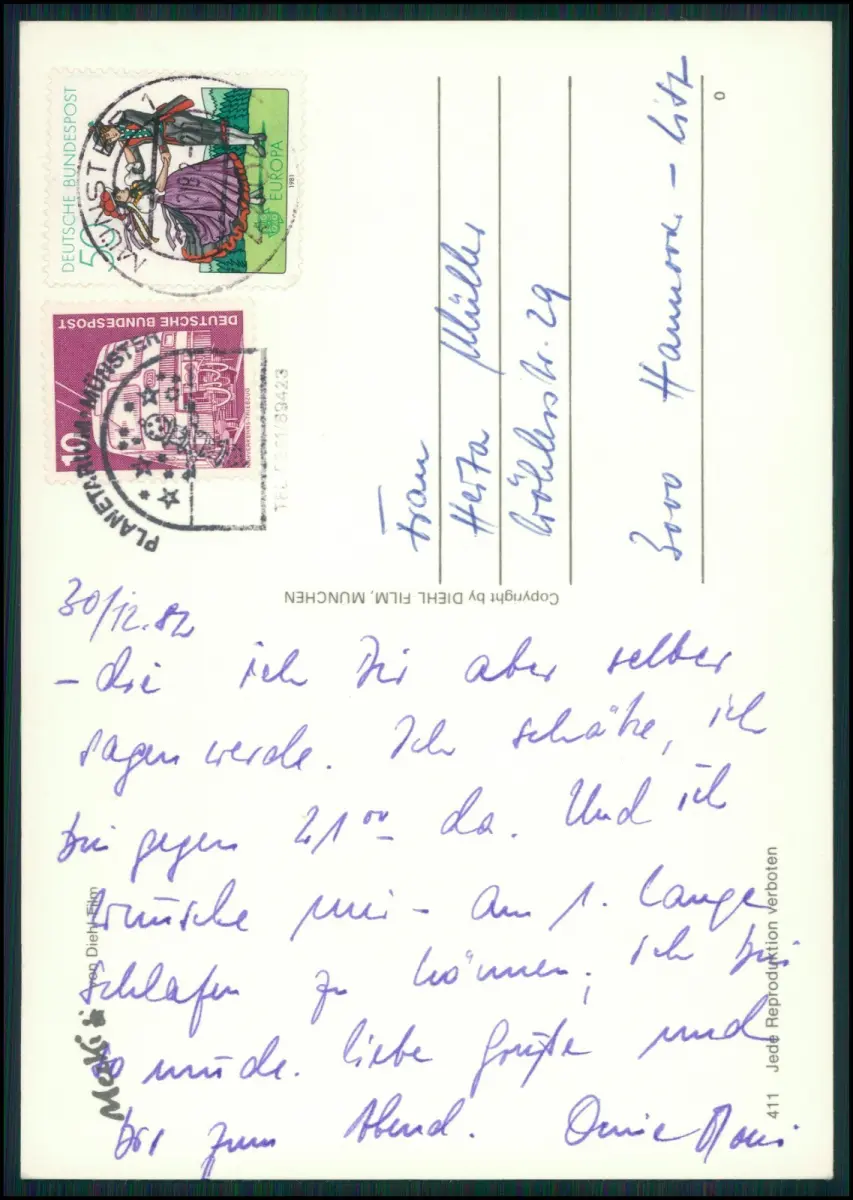 DEUTSCHE BUNDESPOST
50
EUROPA
1981
MÜNSTER
DEUTSCHE BUNDESPOST
10
PLANETARIUM MÜNSTER
Frau
Herta Müller
Wöhlerstr. 29
3000 Hannover - List
Copyright by DIEHL FILM, MÜNCHEN
30/12.82
- die ich Dir aber selber
sagen werde. Ich schätze, ich
bin gegen 21 00 da. Und ich
wünsche mir - am 1. lange
schlafen zu können, ich bin
so müde. Liebe Grüße und
bis zum Abend. Deine
Mecki
von Diehl-Film
411 Jede Reproduktion verboten
0